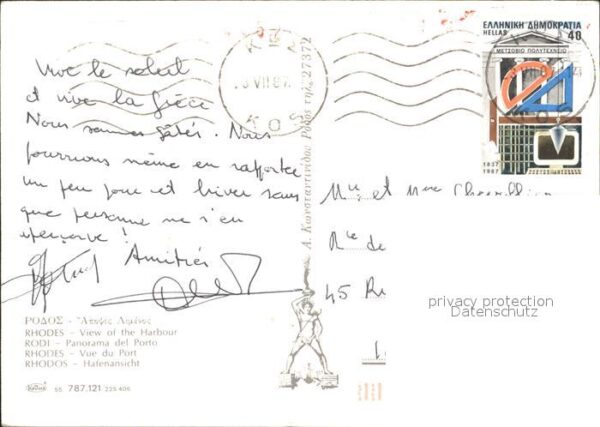 Vive le soleil
et vive la Grèce
Nous sommes gâtés. Nous
pourrions même en rapporter
un peu pour cet hiver sans
que personne ne s'en
aperçoive !
Amitiés
ΡΟΔΟΣ - Ἄποψις Λιμένος
RHODES - View of the Harbour
RODI - Panorama del Porto
RHODES - Vue du Port
RHODOS - Hafenansicht
55 787.121 225 406
Δ. Κωνσταντινίδου Ρόδος τηλ. 27372
ΚΩΣ
VII 87
KOS
ΕΛΛΗΝΙΚΗ ΔΗΜΟΚΡΑΤΙΑ
HELLAS 40
ΜΕΤΣΟΒΙΟ ΠΟΛΥΤΕΧΝΕΙΟ
1837
1987
Mr et Mme
Rue de
45 Ru
privacy protection
Datenschutz